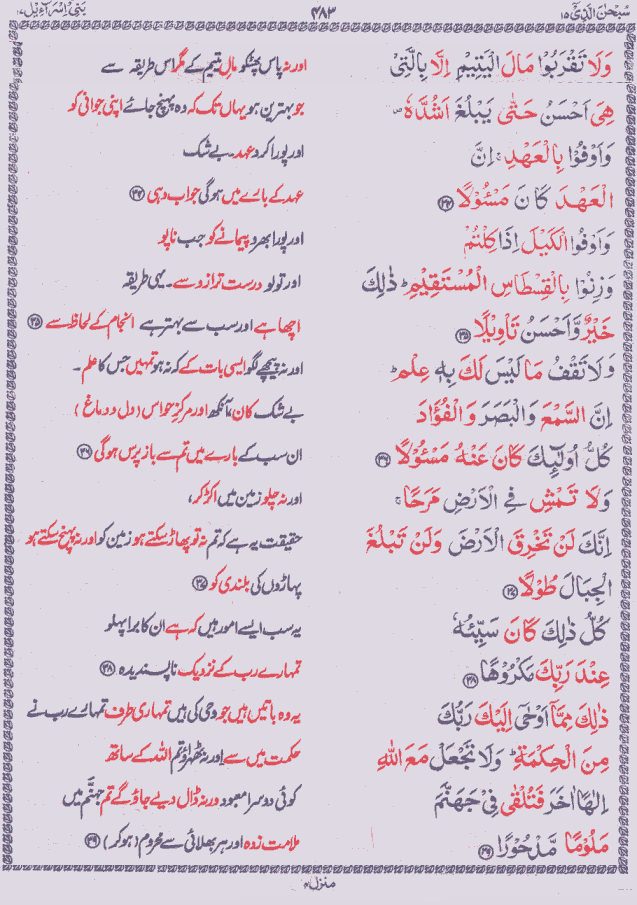 سُبْحٰنَ الَّذِیْٓ ۱۵ ۴۸۳ بَنِیْٓ اِسْرَآءِیْل ۱۷
وَلَا تَقْرَبُوْا مَالَ الْيَتِيْمِ اِلَّا بِالَّتِيْ اور نہ پاس پھٹکو مالِ یتیم کے مگر اس طریقہ سے
هِيَ اَحْسَنُ حَتّٰى يَبْلُغَ اَشُدَّهٗ ۪ جو بہترین ہو یہاں تک کہ وہ پہنچ جائے اپنی جوانی کو
وَاَوْفُوْا بِالْعَهْدِ ۚ اِنَّ اور پورا کرو عہد۔ بے شک
الْعَهْدَ كَانَ مَسْـُٔوْلًا ﴿۳۴﴾ عہد کے بارے میں ہوگی جواب دہی ﴿۳۴﴾
وَاَوْفُوا الْكَيْلَ اِذَا كِلْتُمْ اور پورا بھرو پیمانے کو جب ناپو
وَزِنُوْا بِالْقِسْطَاسِ الْمُسْتَقِيْمِ ؕ ذٰلِكَ اور تولو درست ترازو سے۔ یہی طریقہ
خَيْرٌ وَّاَحْسَنُ تَاْوِيْلًا ﴿۳۵﴾ اچھا ہے اور سب سے بہتر ہے انجام کے لحاظ سے ﴿۳۵﴾
وَلَا تَقْفُ مَا لَيْسَ لَكَ بِهٖ عِلْمٌ ؕ اور نہ پیچھے لگو ایسی بات کے کہ نہ ہو تمہیں جس کا علم۔
اِنَّ السَّمْعَ وَالْبَصَرَ وَالْفُؤَادَ بے شک کان، آنکھ اور مرکزِ حواس (دل و دماغ)
كُلُّ اُولٰٓئِكَ كَانَ عَنْهُ مَسْـُٔوْلًا ﴿۳۶﴾ ان سب کے بارے میں تم سے باز پرس ہوگی ﴿۳۶﴾
وَلَا تَمْشِ فِي الْاَرْضِ مَرَحًا ۚ اور نہ چلو زمین میں اکڑ کر،
اِنَّكَ لَنْ تَخْرِقَ الْاَرْضَ وَلَنْ تَبْلُغَ حقیقت یہ ہے کہ تم نہ تو پھاڑ سکتے ہو زمین کو اور نہ پہنچ سکتے ہو
الْجِبَالَ طُوْلًا ﴿۳۷﴾ پہاڑوں کی بلندی کو ﴿۳۷﴾
كُلُّ ذٰلِكَ كَانَ سَيِّئُهٗ یہ سب ایسے امور ہیں کہ ہے ان کا برا پہلو
عِنْدَ رَبِّكَ مَكْرُوْهًا ﴿۳۸﴾ تمہارے رب کے نزدیک ناپسندیدہ ﴿۳۸﴾
ذٰلِكَ مِمَّآ اَوْحٰٓى اِلَيْكَ رَبُّكَ یہ وہ باتیں ہیں جو وحی کی ہیں تمہاری طرف تمہارے رب نے
مِنَ الْحِكْمَةِ ؕ وَلَا تَجْعَلْ مَعَ اللّٰهِ حکمت میں سے اور نہ ٹھہراؤ تم اللہ کے ساتھ
اِلٰهًا اٰخَرَ فَتُلْقٰى فِيْ جَهَنَّمَ کوئی دوسرا معبود ورنہ ڈال دیے جاؤ گے تم جہنّم میں
مَلُوْمًا مَّدْحُوْرًا ﴿۳۹﴾ ملامت زدہ اور ہر بھلائی سے محروم (ہوکر) ﴿۳۹﴾
منزل ۴